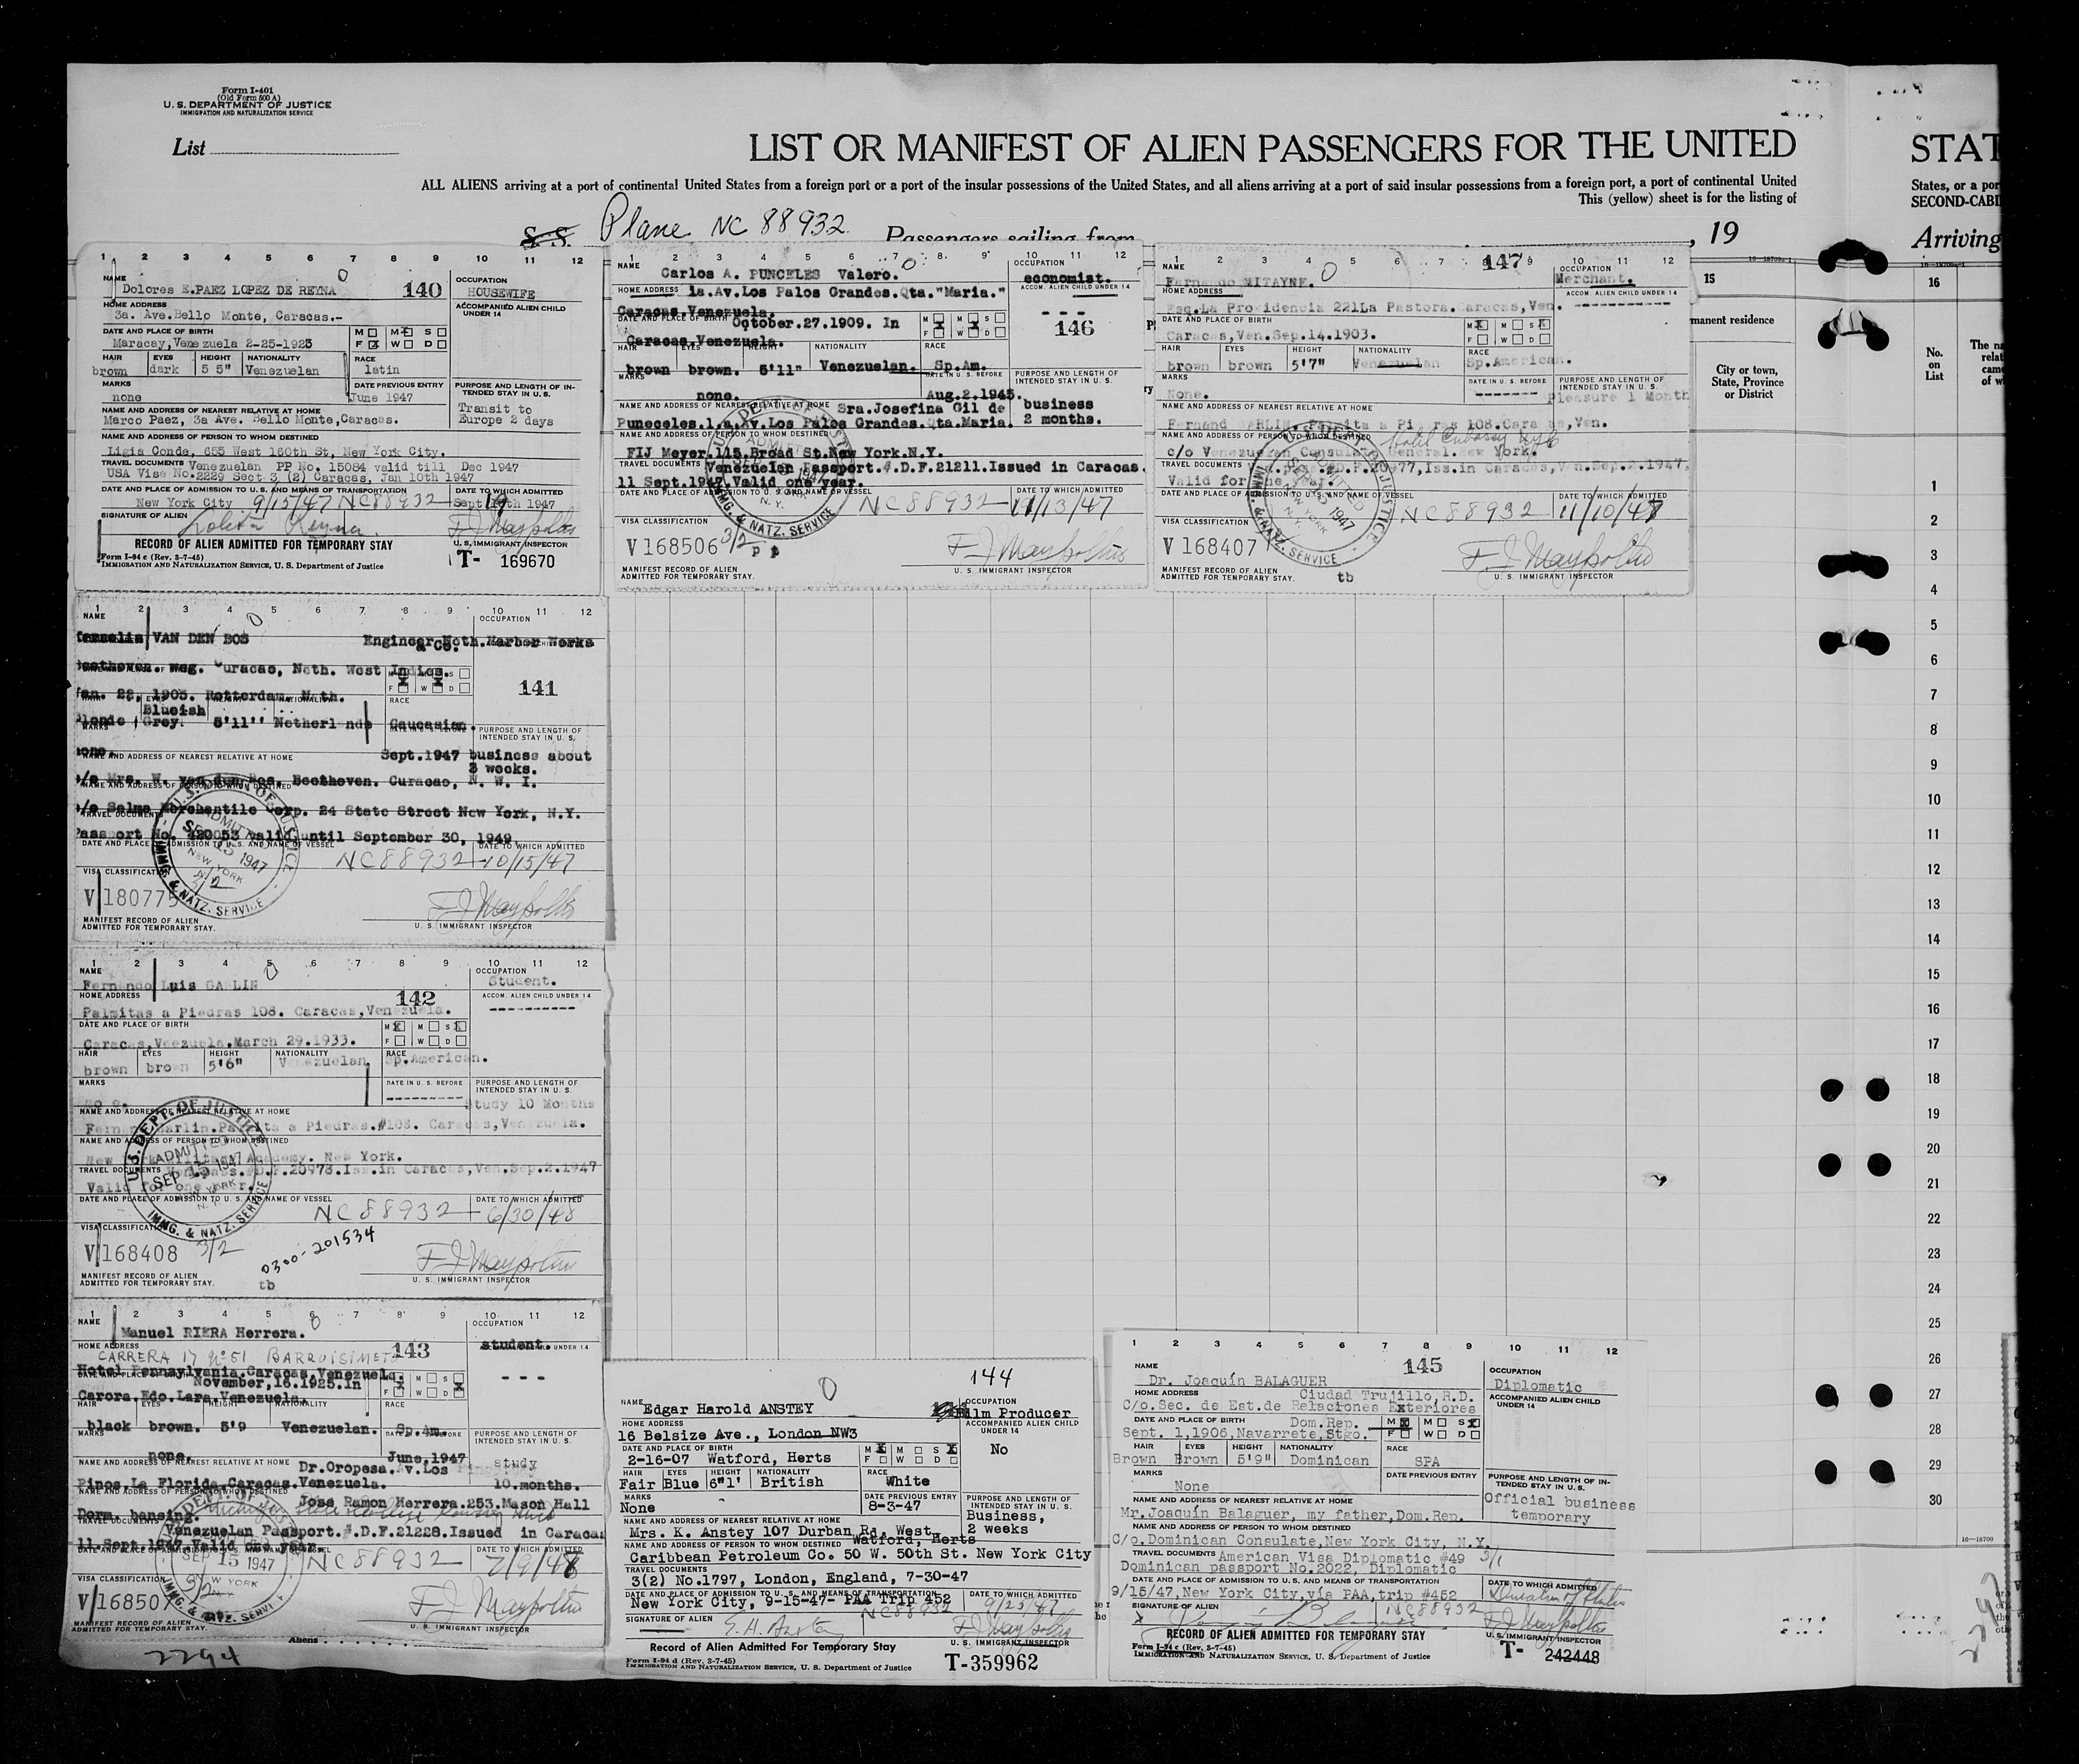 Form I-401
(Old Form 500 A)
U. S. DEPARTMENT OF JUSTICE
IMMIGRATION AND NATURALIZATION SERVICE
List
LIST OR MANIFEST OF ALIEN PASSENGERS FOR THE UNITED
STAT
ALL ALIENS arriving at a port of continental United States from a foreign port or a port of the insular possessions of the United States, and all aliens arriving at a port of said insular possessions from a foreign port, a port of continental United
States, or a por
This (yellow) sheet is for the listing of
SECOND-CABI
S. S. Plane NC 88932 Passengers sailing from , 19
Arriving
1 2 3 4 5 6 7 8 9 10 11 12
NAME
Dolores E.PAEZ LOPEZ DE REYNA
140
OCCUPATION
HOUSEWIFE
HOME ADDRESS
3a. Ave.Bello Monte, Caracas.-
ACCOMPANIED ALIEN CHILD
UNDER 14
DATE AND PLACE OF BIRTH
Maracay,Venezuela 2-25-1923
M M S
F W D
HAIR EYES HEIGHT NATIONALITY RACE
brown dark 5 5" Venezuelan latin
MARKS
none
DATE PREVIOUS ENTRY
June 1947
PURPOSE AND LENGTH OF IN-
TENDED STAY IN U. S.
Transit to
Europe 2 days
NAME AND ADDRESS OF NEAREST RELATIVE AT HOME
Marco Paez, 3a Ave. Bello Monte,Caracas.
NAME AND ADDRESS OF PERSON TO WHOM DESTINED
Ligia Conde, 655 West 160th St, New York City.
TRAVEL DOCUMENTS Venezuelan PP No. 15084 valid till Dec 1947
USA Visa No.2229 Sect 3 (2) Caracas, Jan 10th 1947
DATE AND PLACE OF ADMISSION TO U. S. AND MEANS OF TRANSPORTATION
New York City 9/15/47 NC88932
DATE TO WHICH ADMITTED
SIGNATURE OF ALIEN
Lolita Reyna
RECORD OF ALIEN ADMITTED FOR TEMPORARY STAY
U. S. IMMIGRANT INSPECTOR
Form I-94 c (Rev. 3-7-45)
IMMIGRATION AND NATURALIZATION SERVICE, U. S. Department of Justice
T- 169670
1 2 3 4 5 6 7 8 9 10 11 12
NAME
Carlos A. PUNCELES Valero.
OCCUPATION
economist.
HOME ADDRESS 1a.Av.Los Palos Grandes.Qta."Maria."
ACCOM. ALIEN CHILD UNDER 14
Caracas.Venezuela.
- - -
DATE AND PLACE OF BIRTH October.27.1909. In
M M S
F W D
146
Caracas.Venezuela.
HAIR EYES HEIGHT NATIONALITY RACE
brown brown. 5'11" Venezuelan. Sp.Am.
MARKS
none.
DATE IN U. S. BEFORE
Aug.2.1945.
PURPOSE AND LENGTH OF
INTENDED STAY IN U. S.
business
2 months.
NAME AND ADDRESS OF NEAREST RELATIVE AT HOME Sra.Josefina Gil de
Punceles.1.a.Av.Los Palos Grandes.Qta.Maria.
NAME AND ADDRESS OF PERSON TO WHOM DESTINED
FIJ Meyer.115.Broad St.New York.N.Y.
TRAVEL DOCUMENTS Venezuelan Passport.#.D.F.21211.Issued in Caracas.
11 Sept.1947.Valid one year.
DATE AND PLACE OF ADMISSION TO U. S. AND NAME OF VESSEL
NC88932
DATE TO WHICH ADMITTED
11/13/47
VISA CLASSIFICATION
3/2
V 168506
p p
U. S. IMMIGRANT INSPECTOR
MANIFEST RECORD OF ALIEN
ADMITTED FOR TEMPORARY STAY.
1 2 3 4 5 6 7 8 9 10 11 12
147
NAME
Fernando MITAYNE.
OCCUPATION
Merchant.
HOME ADDRESS
Esq.La Providencia 221La Pastora.Caracas,Ven.
ACCOM. ALIEN CHILD UNDER 14
DATE AND PLACE OF BIRTH
Caracas,Ven.Sep.14.1903.
M M S
F W D
HAIR EYES HEIGHT NATIONALITY RACE
brown brown 5'7" Venezuelan Sp.American.
MARKS
None.
DATE IN U. S. BEFORE
PURPOSE AND LENGTH OF
INTENDED STAY IN U. S.
pleasure 1 Month
NAME AND ADDRESS OF NEAREST RELATIVE AT HOME
108.Caracas,Ven.
NAME AND ADDRESS OF PERSON TO WHOM DESTINED
Hotel Embassy NYC
c/o Venezuelan Consulate General.New York.
TRAVEL DOCUMENTS D.F.20977,Iss.in Caracas,Ven.Sep.2.1947,
Valid for one year.
DATE AND PLACE OF ADMISSION TO U. S. AND NAME OF VESSEL
NC88932
DATE TO WHICH ADMITTED
11/10/47
VISA CLASSIFICATION
V 168407
U. S. IMMIGRANT INSPECTOR
MANIFEST RECORD OF ALIEN
ADMITTED FOR TEMPORARY STAY.
tb
15
manent residence
City or town,
State, Province
or District
16
No.
on
List
The na
relat
came
of w
1
2
3
4
5
6
7
8
9
10
11
12
13
14
15
16
17
18
19
20
21
22
23
24
25
26
27
28
29
30
16—18709
1 2 3 4 5 6 7 8 9 10 11 12
NAME
VAN DEN BOS
OCCUPATION
Engineer Neth.Harbor Works
& Co.
Beethoven. weg. Curacao, Neth. West Indies.
M M S
F W D
141
Jan. 22, 1905. Rotterdam. Neth.
Blueish
Blonde Grey. 5'11'' Netherlands Caucasian.
RACE
MARKS
none.
DATE IN U. S. BEFORE
PURPOSE AND LENGTH OF
INTENDED STAY IN U. S.
NAME AND ADDRESS OF NEAREST RELATIVE AT HOME
Sept.1947 business about
3 weeks.
c/o Mrs. W. van den Bos, Beethoven. Curacao, N. W. I.
NAME AND ADDRESS OF PERSON TO WHOM DESTINED
c/o Selma Merchantile Corp. 24 State Street New York, N.Y.
TRAVEL DOCUMENTS
Passport No. 420053 valid until September 30, 1949.
DATE AND PLACE OF ADMISSION TO U. S. AND NAME OF VESSEL
NC88932
DATE TO WHICH ADMITTED
10/15/47
VISA CLASSIFICATION
V 180775
U. S. IMMIGRANT INSPECTOR
MANIFEST RECORD OF ALIEN
ADMITTED FOR TEMPORARY STAY.
1 2 3 4 5 6 7 8 9 10 11 12
NAME
Fernando Luis GARLIN
OCCUPATION
Student.
HOME ADDRESS
142
ACCOM. ALIEN CHILD UNDER 14
Palmitas a Piedras 108. Caracas,Venezuela.
DATE AND PLACE OF BIRTH
Caracas,Veezuela.March 29.1933.
M M S
F W D
HAIR EYES HEIGHT NATIONALITY RACE
brown brown 5'6" Venezuelan Sp.American.
MARKS
DATE IN U. S. BEFORE
PURPOSE AND LENGTH OF
INTENDED STAY IN U. S.
Study 10 Months
NAME AND ADDRESS OF NEAREST RELATIVE AT HOME
Garlin.Palmita a Piedras.#108. Caracas,Venezuela.
NAME AND ADDRESS OF PERSON TO WHOM DESTINED
New York Military Academy. New York.
TRAVEL DOCUMENTS D.F.20978.Iss.in Caracas,Ven.Sep.2.1947
Valid for one year.
DATE AND PLACE OF ADMISSION TO U. S. AND NAME OF VESSEL
NC88932
DATE TO WHICH ADMITTED
6/30/48
VISA CLASSIFICATION
V 168408
3/2
0300-201534
U. S. IMMIGRANT INSPECTOR
MANIFEST RECORD OF ALIEN
ADMITTED FOR TEMPORARY STAY.
tb
1 2 3 4 5 6 7 8 9 10 11 12
NAME
Manuel RIERA Herrera.
OCCUPATION
student.
HOME ADDRESS
CARRERA 17 Nº 51 BARQUISIMETO
143
Hotel Pennsylvania.Caracas.Venezuela.
November,16.1925.In
- - -
Carora.Edo.Lara.Venezuela.
HAIR EYES HEIGHT NATIONALITY RACE
black brown. 5'9 Venezuelan. Sp.Am.
MARKS
none.
June,1947
PURPOSE AND LENGTH OF
INTENDED STAY IN U. S.
study
10.months.
NAME AND ADDRESS OF NEAREST RELATIVE AT HOME Dr.Oropesa.Av.Los
Pinos.La Florida.Caracas.Venezuela.
NAME AND ADDRESS OF PERSON TO WHOM DESTINED
Jose Ramon Herrera.253.Mason Hall
Dorm. lansing.
TRAVEL DOCUMENTS Venezuelan Passport.#.D.F.21228.Issued in Caracas
11.Sept.1947.Valid one year.
NC88932
DATE TO WHICH ADMITTED
VISA CLASSIFICATION
V 168507
U. S. IMMIGRANT INSPECTOR
MANIFEST RECORD OF ALIEN
ADMITTED FOR TEMPORARY STAY.
Aliens
2294
144
NAME Edgar Harold ANSTEY
OCCUPATION
Film Producer
HOME ADDRESS
16 Belsize Ave., London NW3
ACCOMPANIED ALIEN CHILD
UNDER 14
No
DATE AND PLACE OF BIRTH
2-16-07 Watford, Herts
M M S
F W D
HAIR EYES HEIGHT NATIONALITY RACE
Fair Blue 6"1' British White
MARKS
None
DATE PREVIOUS ENTRY
8-3-47
PURPOSE AND LENGTH OF
INTENDED STAY IN U. S.
Business,
2 weeks
NAME AND ADDRESS OF NEAREST RELATIVE AT HOME
Mrs. K. Anstey 107 Durban Rd. West,
Watford, Herts
NAME AND ADDRESS OF PERSON TO WHOM DESTINED
Caribbean Petroleum Co. 50 W. 50th St. New York City
TRAVEL DOCUMENTS
3(2) No.1797, London, England, 7-30-47
DATE AND PLACE OF ADMISSION TO U. S. AND MEANS OF TRANSPORTATION
New York City, 9-15-47- PAA Trip 452
NC88932
DATE TO WHICH ADMITTED
SIGNATURE OF ALIEN
E. H. Anstey
Record of Alien Admitted For Temporary Stay
U. S. IMMIGRANT INSPECTOR
Form I-94 d (Rev. 3-7-45)
IMMIGRATION AND NATURALIZATION SERVICE, U. S. Department of Justice
T-359962
1 2 3 4 5 6 7 8 9 10 11 12
145
NAME
Dr. Joaquín BALAGUER
OCCUPATION
Diplomatic
HOME ADDRESS Ciudad Trujillo,R.D.
C/o.Sec. de Est.de Relaciones Exteriores
ACCOMPANIED ALIEN CHILD
UNDER 14
DATE AND PLACE OF BIRTH Dom.Rep.
Sept. 1,1906,Navarrete,Stgo.
M M S
F W D
HAIR EYES HEIGHT NATIONALITY RACE
Brown Brown 5'9" Dominican SPA
MARKS
None
DATE PREVIOUS ENTRY
PURPOSE AND LENGTH OF IN-
TENDED STAY IN U. S.
Official business
temporary
NAME AND ADDRESS OF NEAREST RELATIVE AT HOME
Mr.Joaquín Balaguer, my father,Dom.Rep.
NAME AND ADDRESS OF PERSON TO WHOM DESTINED
C/o.Dominican Consulate,New York City, N.Y.
TRAVEL DOCUMENTS American Visa Diplomatic #49 3/1
Dominican passport No.2022, Diplomatic
DATE AND PLACE OF ADMISSION TO U. S. AND MEANS OF TRANSPORTATION
9/15/47,New York City,vía PAA,trip #452
NC88932
DATE TO WHICH ADMITTED
Duration of Status
SIGNATURE OF ALIEN
RECORD OF ALIEN ADMITTED FOR TEMPORARY STAY
U. S. IMMIGRANT INSPECTOR
Form I-94 c (Rev. 3-7-45)
IMMIGRATION AND NATURALIZATION SERVICE, U. S. Department of Justice
T- 242448